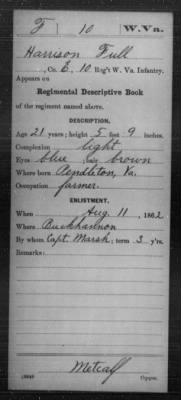 F 10 W.Va.
Harrison Full
, Co. E, 10 Reg't W. Va. Infantry.
Appears on
Regimental Descriptive Book
of the regiment named above.
DESCRIPTION.
Age 21 years; height 5 feet 9 inches.
Complexion light
Eyes blue, hair brown
Where born Pendleton, Va.
Occupation farmer.
ENLISTMENT.
When Aug. 11, 1862
Where Buckhannon
By whom Capt. Marsh; term 3 y'rs.
Remarks:
Metcalf
Copyist.